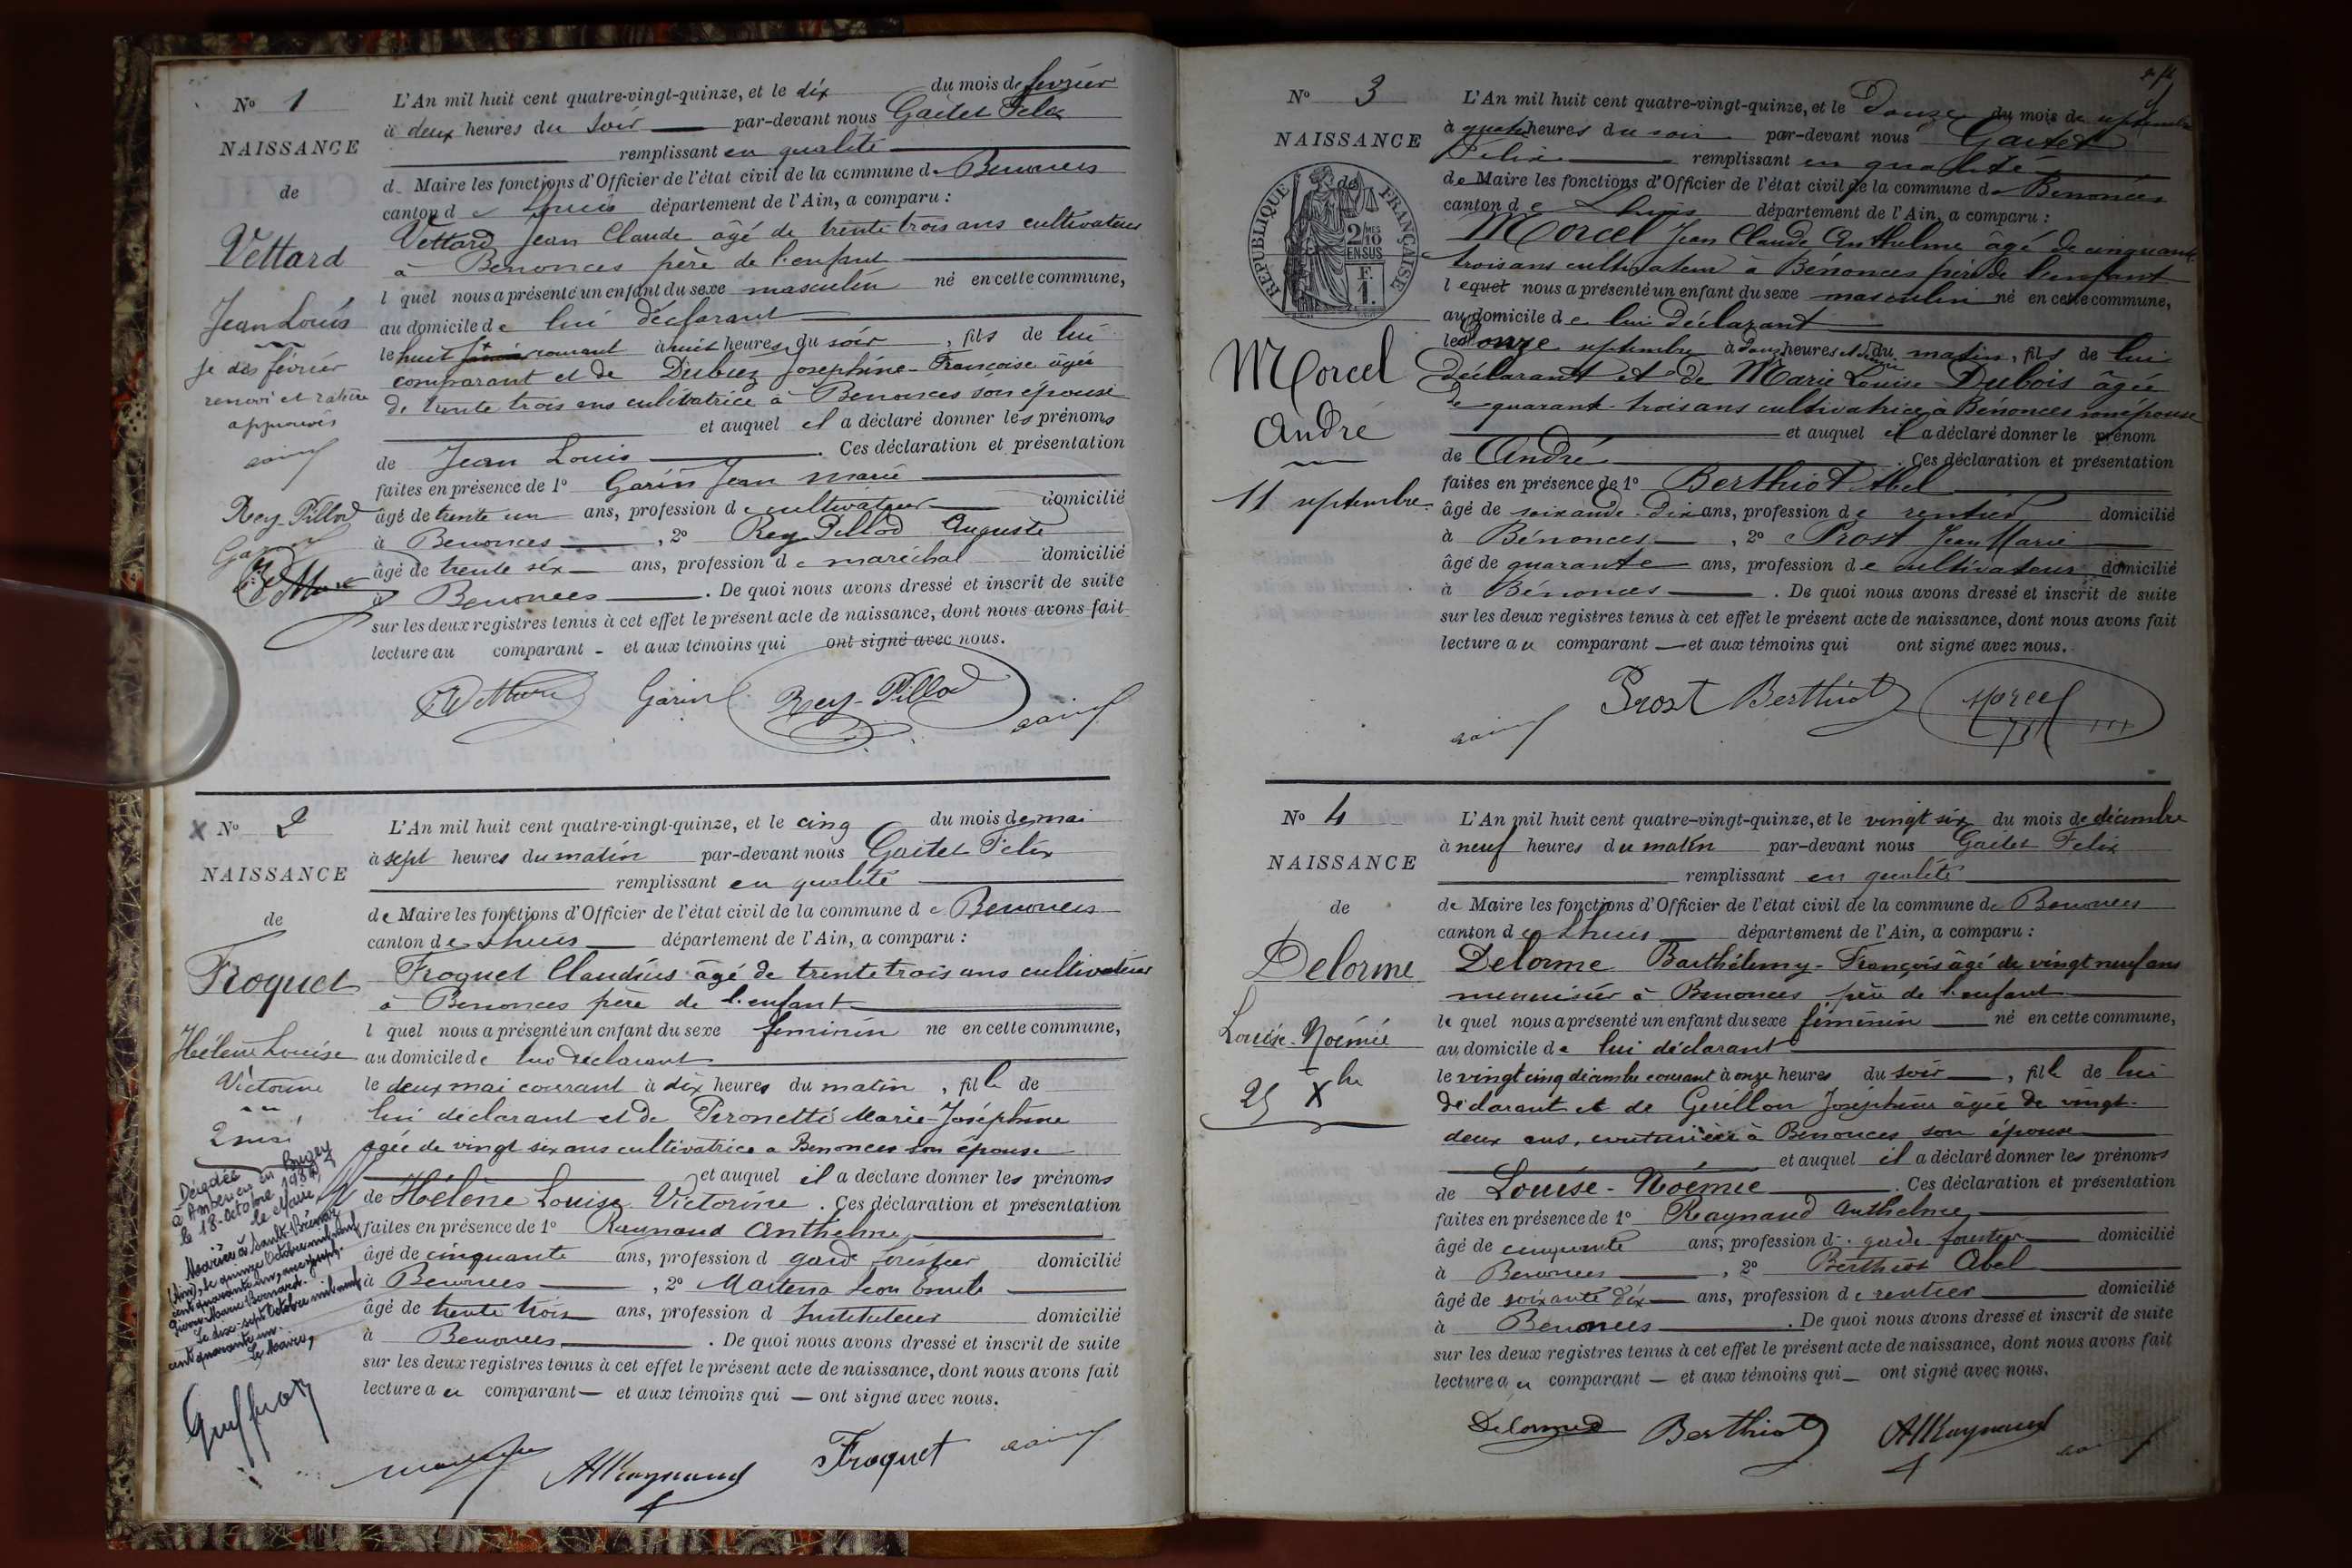 Nº 1
NAISSANCE
de
Vettard
Jean Louis
je dis février
renvoi et rature
approuvés
Rey-Pillod
Garin
L'An mil huit cent quatre-vingt-quinze, et le dix du mois de février
à deux heures du soir par-devant nous Gaitet Felix
remplissant en qualité
de Maire les fonctions d'Officier de l'état civil de la commune de Benonces
canton de Lhuis département de l'Ain, a comparu :
Vettard Jean Claude âgé de trente trois ans cultivateur
à Benonces père de l'enfant
l quel nous a présenté un enfant du sexe masculin né en cette commune,
au domicile de lui déclarant
le huit courant à huit heures du soir, fils de lui
comparant et de Joséphine-Françoise âgée
de trente trois ans cultivatrice à Benonces son épouse
et auquel il a déclaré donner les prénoms
de Jean Louis. Ces déclaration et présentation
faites en présence de 1º Garin Jean Marie
âgé de trente un ans, profession de cultivateur domicilié
à Benonces, 2º Rey-Pillod Auguste
âgé de trente six ans, profession de maréchal domicilié
à Benonces. De quoi nous avons dressé et inscrit de suite
sur les deux registres tenus à cet effet le présent acte de naissance, dont nous avons fait
lecture au comparant - et aux témoins qui ont signé avec nous.
Garin Rey-Pillod
X Nº 2
NAISSANCE
de
Froquet
Hélène Louise
Victorine
2 mai
Décédée
à Ambérieu en Bugey
le 18 octobre 198
le Maire,
L'An mil huit cent quatre-vingt-quinze, et le cinq du mois de mai
à sept heures du matin par-devant nous Gaitet Félix
remplissant en qualité
de Maire les fonctions d'Officier de l'état civil de la commune de Benonces
canton de Lhuis département de l'Ain, a comparu :
Froquet Claudius âgé de trente trois ans cultivateur
à Benonces père de l'enfant
l quel nous a présenté un enfant du sexe feminin né en cette commune,
au domicile de lui déclarant
le deux mai courant à dix heures du matin, fille de
lui déclarant et de Peronetti Marie-Joséphine
agée de vingt six ans cultivatrice a Benonces son épouse
et auquel il a déclaré donner les prénoms
de Hélène Louise Victorine. Ces déclaration et présentation
faites en présence de 1º Raynaud Anthelme
âgé de cinquante ans, profession d garde forestier domicilié
à Benonces, 2º Leon Emile
âgé de trente trois ans, profession d Instituteur domicilié
à Benonces. De quoi nous avons dressé et inscrit de suite
sur les deux registres tenus à cet effet le présent acte de naissance, dont nous avons fait
lecture au comparant — et aux témoins qui — ont signé avec nous.
Mariée à
(Ain), le quinze Octobre mil neuf
cent quarante un, avec Joseph
Marie Bernard.
Le dix-sept Octobre mil neuf
cent quarante un.
Le Maire,
ARaynaud Froquet
Nº 3
NAISSANCE
de
RÉPUBLIQUE FRANÇAISE
2/10 MES
EN SUS
F.
1.
Morcel
André
11 septembre
L'An mil huit cent quatre-vingt-quinze, et le Douze du mois de septembre
à quatre heures du soir par-devant nous Gaitet
Félix remplissant en qualité
de Maire les fonctions d'Officier de l'état civil de la commune de Bénonces
canton de Lhuis département de l'Ain, a comparu :
Morcel Jean Claude Anthelme âgé de cinquante
trois ans cultivateur à Bénonces père de l'enfant
lequel nous a présenté un enfant du sexe masculin né en cette commune,
au domicile de lui Déclarant
le onze septembre à heures du matin, fils de lui
déclarant et de Marie Louise Dubois âgée
de quarante-trois ans cultivatrice à Bénonces son épouse
et auquel il a déclaré donner le prénom
de André. Ces déclaration et présentation
faites en présence de 1º Berthiot Abel
âgé de soixante-dix ans, profession de rentier domicilié
à Bénonces, 2º Prost Jean Marie
âgé de quarante ans, profession de cultivateur domicilié
à Bénonces. De quoi nous avons dressé et inscrit de suite
sur les deux registres tenus à cet effet le présent acte de naissance, dont nous avons fait
lecture au comparant — et aux témoins qui ont signé avec nous.
Prost Berthiot Morcel
Nº 4
NAISSANCE
de
Delorme
Louise-Noémie
25 Xbre
L'An mil huit cent quatre-vingt-quinze, et le vingt six du mois de décembre
à neuf heures du matin par-devant nous Gaitet Felix
remplissant en qualité
de Maire les fonctions d'Officier de l'état civil de la commune de Benonces
canton de Lhuis département de l'Ain, a comparu :
Delorme Barthélemy-François âgé de vingt neuf ans
menuisier à Benonces père de l'enfant
le quel nous a présenté un enfant du sexe féminin né en cette commune,
au domicile de lui déclarant
le vingt cinq décembre courant à onze heures du soir, fille de lui
déclarant et de Guillon Joséphine âgée de vingt
deux ans, couturière à Benonces son épouse
et auquel il a déclaré donner les prénoms
de Louise-Noémie. Ces déclaration et présentation
faites en présence de 1º Raynaud Anthelme
âgé de cinquante ans, profession d. garde forestier domicilié
à Benonces, 2º Berthiot Abel
âgé de soixante dix ans, profession de rentier domicilié
à Benonces. De quoi nous avons dressé et inscrit de suite
sur les deux registres tenus à cet effet le présent acte de naissance, dont nous avons fait
lecture au comparant — et aux témoins qui — ont signé avec nous.
Delorme Berthiot ARaynaud